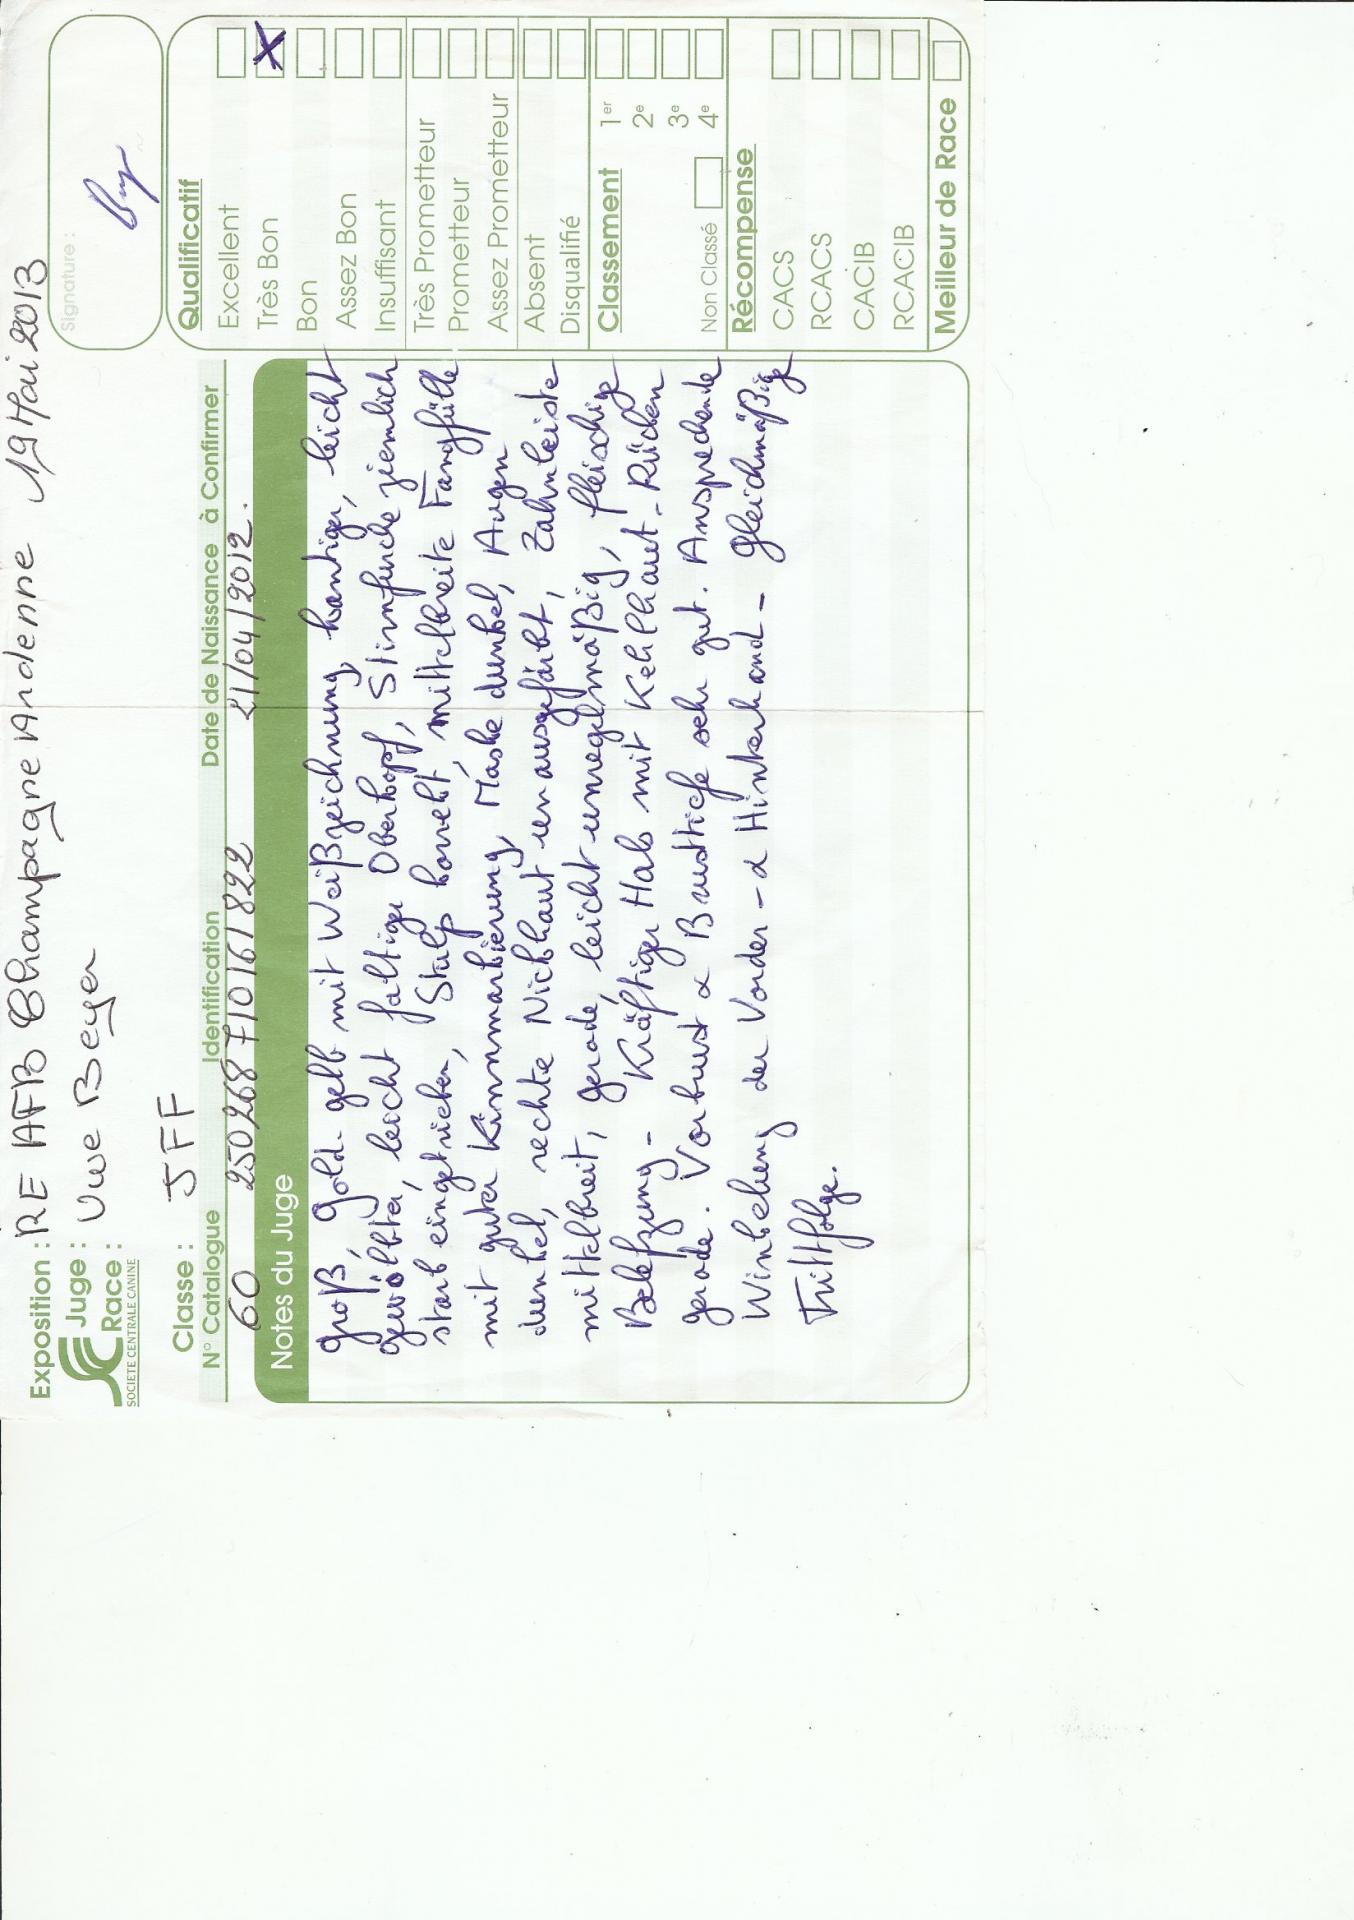 Exposition : RE AFB Champagne Ardenne 19 Mai 2013
Juge : Uwe Beyer
Race :
SOCIETE CENTRALE CANINE
Signature :
Classe : JFF
N° Catalogue Identification Date de Naissance à Confirmer
60 250268710161822 21/04/2012.
Notes du Juge
groß, Gold-gelb mit Weißzeichnung, kantiger, leicht
gewölbter, leicht faltiger Oberkopf, Stirnfurche ziemlich
stark eingetrieben, Stop korrekt, mittelbreite Fangfülle
mit guter Kinnmarkierung, Maske dunkel, Augen
dunkel, rechte Nickhaut unausgefärbt, Zahnleiste
mittelbreit, gerade, leicht unregelmäßig, fleischige
Belefzung - Kräftiger Hals mit Kehlhaut - Rücken
gerade. Vorbrust & Brusttiefe sehr gut. Ansprechende
Winkelung der Vorder- & Hinterhand - gleichmäßige
Trittfolge.
Qualificatif
Excellent
Très Bon X
Bon
Assez Bon
Insuffisant
Très Prometteur
Prometteur
Assez Prometteur
Absent
Disqualifié
Classement 1er
2e
3e
Non Classé 4e
Récompense
CACS
RCACS
CACIB
RCACIB
Meilleur de Race